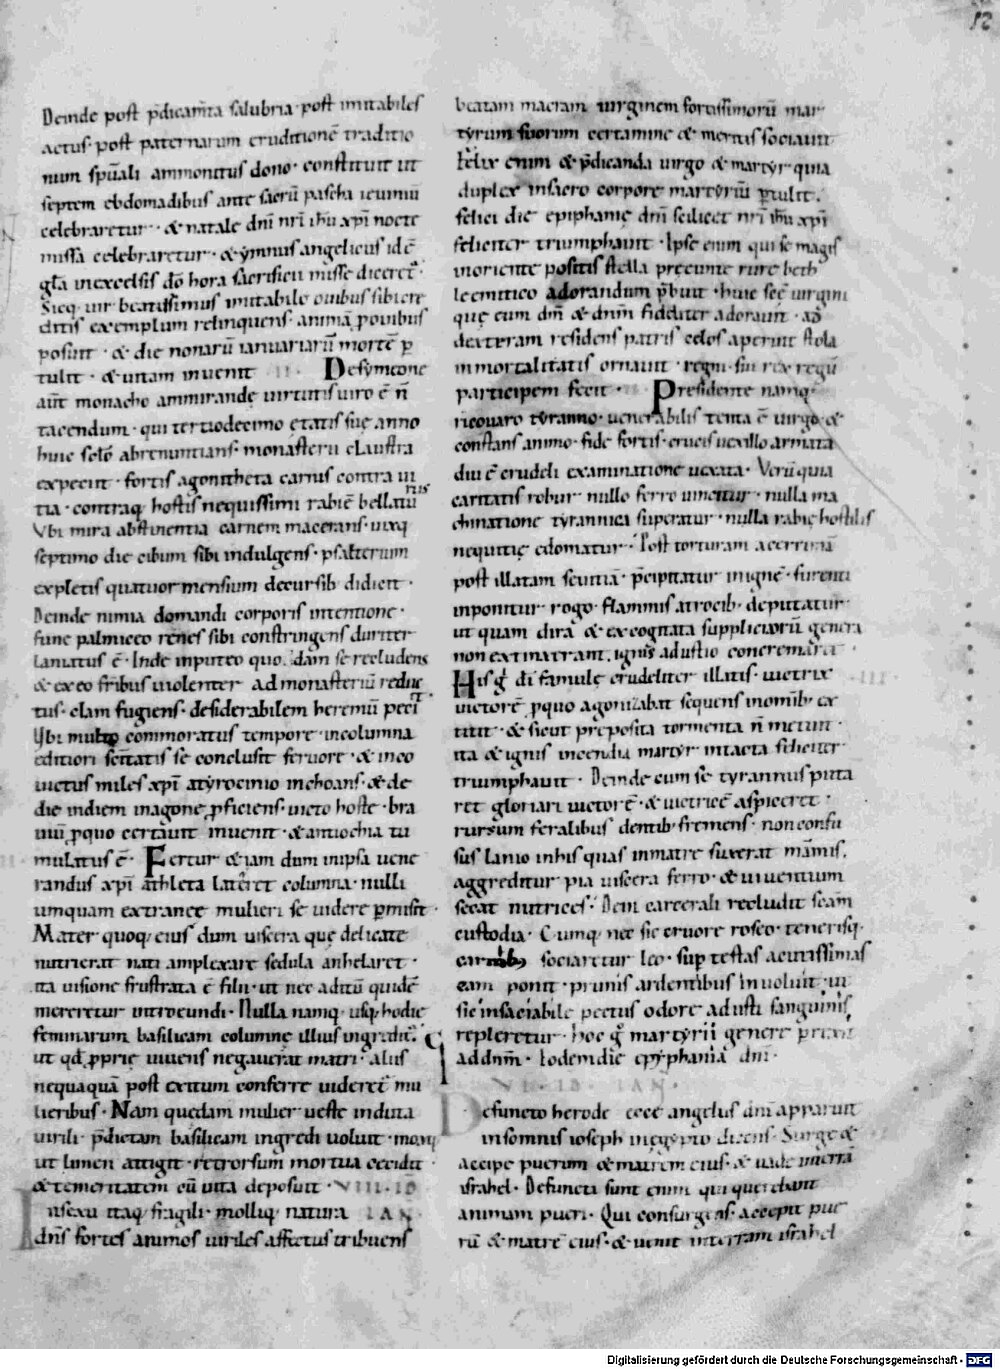 12
Deinde post p̄dicam̄ta salubria · post imitabiles
actus · post paternarum eruditionē traditio
num sp̄uali ammonitus dono · constituit ut
septem ebdomadibus ante sacrū pascha ieiuniū
celebraretur · & natale dn̄i nr̄i ih̄u xp̄i nocte
missa celebraretur · & ymnus angelicus id ē
gl̄a in excelsis dō hora sacrificii misse diceret̄ .
Sicq; uir beatissimus imitabile ouibus sibi cre
ditis exemplum relinquens · animā p ouibus
posuit · & die nonarū ianuariarū mortē p
tulit · & uitam inuenit De symeone
aut̄ monacho ammirandę uirtutis uiro ē n̄
tacendum · qui tertiodecimo etatis suę anno
huic sclō abrenuntians · monasterii claustra
expeciit · fortis agonitheta carius contra ui
tia · contraq; hostis nequissimi rabiē bellatu
rus
Vbi mira abstinentia carnem macerans · uixq;
septimo die cibum sibi indulgens · psalterium
expletis quatuor mensium decursib; didicit ·
Deinde nimia domandi corporis intentione ·
fune palmiceo renes sibi constringens duriter
laniatus ē · Inde in puteo quodam se recludens
& ex eo fribus uiolenter ad monasteriū reduc
tus · clam fugiens · desiderabilem heremū peciit
Vbi multo commoratus tempore · in columna
editiori scītatis se conclusit feruore · & inuictus
uictus miles xp̄i a tyrocinio inchoans · & de
die in diem in agone p̄ficiens · uicto hoste · bra
uiū p quo certauit inuenit · & antiochia tu
mulatus ē · Fertur etiam dum in ipsa uene
randus xp̄i athleta lateret columna · nulli
umquam extraneę mulieri se uidere p̄misit ·
Mater quoq; eius dum uiscera quę delicate
nutrierat nati amplexare sedula anhelaret ·
ita uisione frustrata ē filii · ut nec aditū quidē
mereretur introeundi · Nulla namq; usq; hodie
feminarum basilicam columnę illius ingredit̄ .
ut qd̄ p̄prię uiuens negauerat matri · aliis
nequaquā post exitum conferre uideret̄ mu
lieribus · Nam quędam mulier ueste induta
uirili · p̄dictam basilicam ingredi uoluit · moxq;
ut limen attigit · retrorsum mortua cecidit ·
& temeritatem cū uita deposuit · VIII · ID
In sexu itaq; fragili · molliq; natura IAN ·
dn̄s fortes animos uiriles affectus tribuens
beatam macram uirginem fortissimorū mar
tyrum suorum certamine & meritis sociauit
Felix enim & p̄dicanda uirgo & martyr quia
duplex in sacro corpore martyriū p̄tulit .
felici die epiphanię dn̄i scilicet nr̄i ih̄u xp̄i
feliciter triumphauit · Ipse enim qui se magis
in oriente positis stella preeunte rure beth
leemitico adorandum p̄buit · huic sc̄ę uirgini
quę eum dm̄ & dn̄m fideliter adorauit · ad
dexteram residens patris cęlos aperuit stola
inmortalitatis ornauit · regni sui rex regū
participem fecit · Presidente namq;
ricouaro tyranno · uenerabilis tenta ē uirgo · &
constans animo · fide fortis · crucis uexillo armata
diu ē crudeli examinatione uexata · Verū quia
caritatis robur nullo ferro uincitur · nulla ma
chinatione tyrannica superatur · nulla rabię hostilis
nequitię edomatur · Post torturam acerrimā
post illatam seuitiā · p̄cipitatur in ignē · furenti
inponitur rogo · flammis atrocib; deputatur
ut quam dira & excogitata suppliciorū genera
non extinxerant . ignis adustio concremaret ·
His g̊ di famulę crudeliter illatis · uictrix III ·
uictorē p quo agonizabat sequens in omnib; ex
titit · & sicut preposita tormenta n̄ metuit ·
ita & ignis incendia martyr intacta feliciter
triumphauit · Deinde cum se tyrannus puta
ret gloriari uictorē · & uictricē aspiceret ·
rursum feralibus dentib; fremens · non confu
sus lanio in his quas in matre suxerat mām̄is .
aggreditur pia uiscera ferro · & uiuentium
secat nutrices · Dein carcerali recludit sc̄am
custodia · Cumq; nec sic cruore roseo · tenerisq;
carnib; sociaretur leo · sup testas acutissimas
eam ponit · prunis ardentibus inuoluit · ut
sic insaciabile pectus odore adusti sanguinis
repleretur · hoc g̊ martyrii genere p̄rexit
ad dn̄m · Eodem die epyphania dn̄i ·
VI · ID · IAN ·
Defuncto herode ecce angelus dn̄i apparuit
in somnis ioseph in ęgypto dicens · Surge &
accipe puerum & matrem eius · & uade in terrā
israhel · Defuncti sunt enim qui querebant
animam pueri · Qui consurgens · accepit pue
rū & matrē eius · & uenit in terram israhel
Digitalisierung gefördert durch die Deutsche Forschungsgemeinschaft - DFG